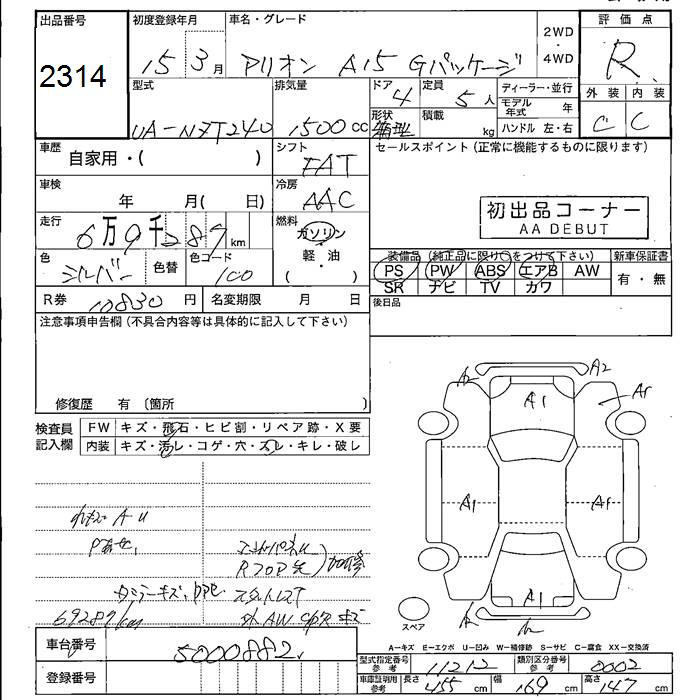 出品番号
2314
初度登録年月
15 3月
車名・グレード
アリオン A15 Gパッケージ
2WD
・
4WD
評価点
R
外装 内装
C C
型式
UA-NZT240
排気量
1500cc
ドア
4
定員
5人
形状
箱型
積載
kg
ディーラー・並行
モデル年式 年
ハンドル 左・右
車歴
自家用・( )
シフト
FAT
セールスポイント(正常に機能するものに限ります)
車検
年 月( 日)
冷房
AAC
初出品コーナー
AA DEBUT
走行
6万9千287km
燃料
ガソリン
・
軽・油
( )
色
シルバー
色替
色コード
1C0
装備品(純正品に限り○をつけて下さい)
新車保証書
PS PW ABS エアB AW
SR ナビ TV カワ
有・無
R券
10830円
名変期限 月 日
後日品
注意事項申告欄(不具合内容等は具体的に記入して下さい)
修復歴 有(箇所 )
検査員
記入欄
FW キズ・飛石・ヒビ割・リペア跡・X要
内装 キズ・汚レ・コゲ・穴・スレ・キレ・破レ
A2 A2
A1 A1
A1 A1
A1
スペア
A-キズ E-エクボ U-凹み W-補修跡 S-サビ C-腐食 XX-交換済
A U
69287km
車台番号
5000882
登録番号
型式指定番号
参考
11212
類別区分番号
参考
0002
車庫証明用
参考
長さ 455cm
幅 169cm
高さ 147cm